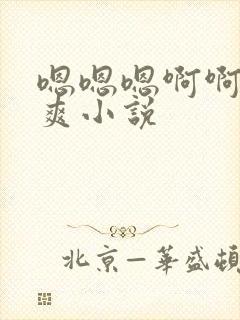 嗯嗯嗯啊啊
爽小說
北京—華盛頓